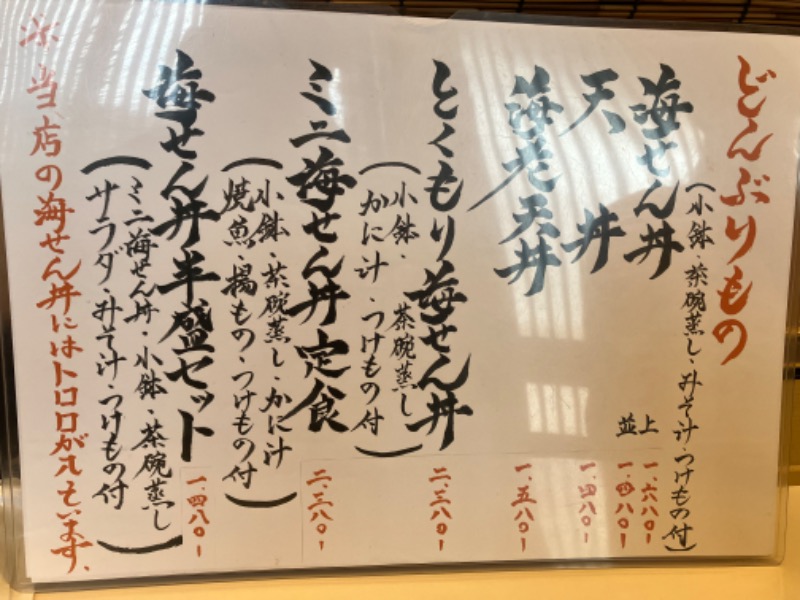 どんぶりもの
海せん丼
(小鉢・茶碗蒸し・みそ汁・つけもの付)
上 一、六八〇ー
並 一、四八〇ー
天丼 一、四八〇ー
海老天丼 一、五八〇ー
とくもり海せん丼 二、三八〇ー
(小鉢・茶碗蒸し
かに汁・つけもの付)
ミニ海せん丼定食 二、三八〇ー
(小鉢・茶碗蒸し・かに汁
焼魚・揚もの・つけもの付)
海せん丼半盛セット 一、四八〇ー
(ミニ海せん丼・小鉢・茶碗蒸し
サラダ・みそ汁・つけもの付)
※当店の海せん丼にはトロロが入ています。